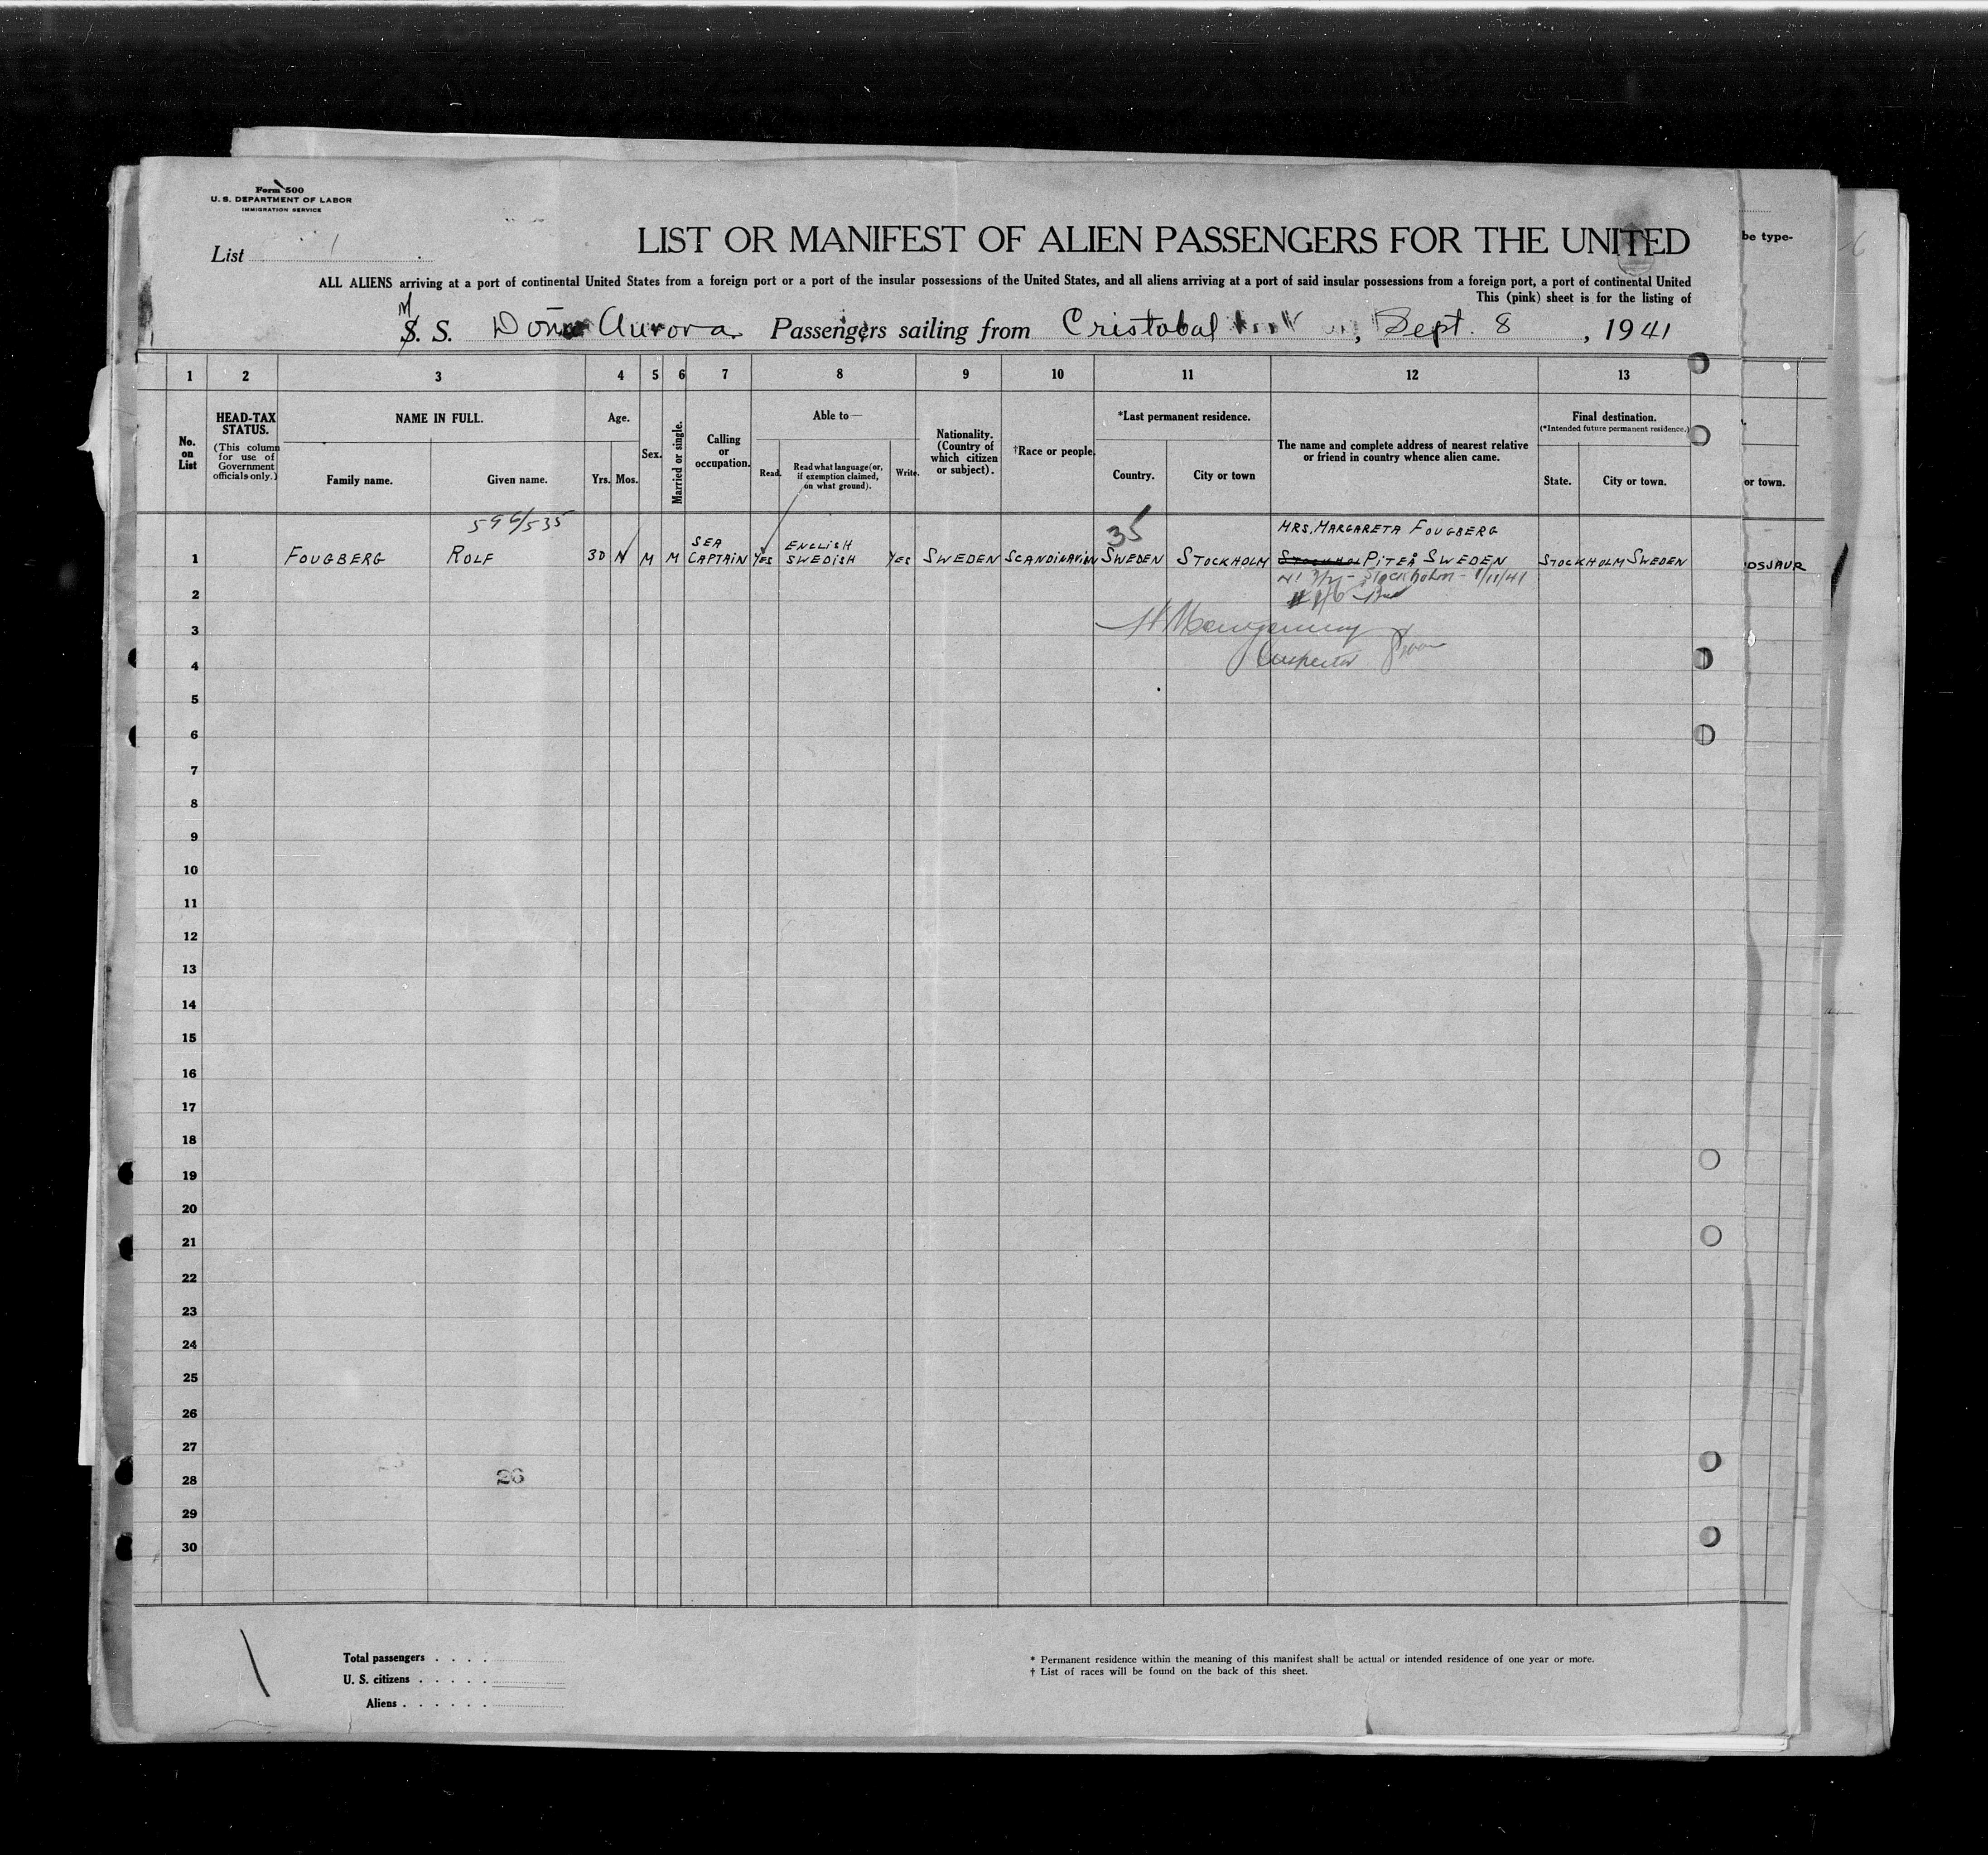 Form 500
U. S. DEPARTMENT OF LABOR
IMMIGRATION SERVICE
List 1
LIST OR MANIFEST OF ALIEN PASSENGERS FOR THE UNITED
be type-
ALL ALIENS arriving at a port of continental United States from a foreign port or a port of the insular possessions of the United States, and all aliens arriving at a port of said insular possessions from a foreign port, a port of continental United
This (pink) sheet is for the listing of
M
S. S. Doña Aurora Passengers sailing from Cristobal, Sept. 8, 1941
1 2 3 4 5 6 7 8 9 10 11 12 13
No. on List
HEAD-TAX STATUS.
(This column for use of Government officials only.)
NAME IN FULL.
Family name. Given name.
Age.
Yrs. Mos.
Sex.
Married or single.
Calling or occupation.
Able to—
Read. Read what language (or, if exemption claimed, on what ground). Write.
Nationality. (Country of which citizen or subject).
†Race or people.
*Last permanent residence.
Country. City or town
The name and complete address of nearest relative or friend in country whence alien came.
Final destination.
(*Intended future permanent residence.)
State. City or town.
or town.
596/535
35
MRS. MARGARETA FOUGBERG
1 FOUGBERG ROLF 30 N M M SEA CAPTAIN YES ENGLISH SWEDISH YES SWEDEN SCANDINAVIAN SWEDEN STOCKHOLM STOCKHOL PITEÅ SWEDEN STOCKHOLM SWEDEN
OSJAUR
Stockholm - 1/11/41
2
3
Inspector
4
5
6
7
8
9
10
11
12
13
14
15
16
17
18
19
20
21
22
23
24
25
26
27
28 26
29
30
Total passengers . . . .
U. S. citizens . . . . .
Aliens . . . . . .
* Permanent residence within the meaning of this manifest shall be actual or intended residence of one year or more.
† List of races will be found on the back of this sheet.